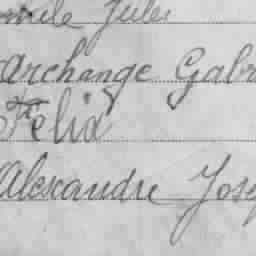 Jules
Archange Gabr
Felix
Alexandre Jose